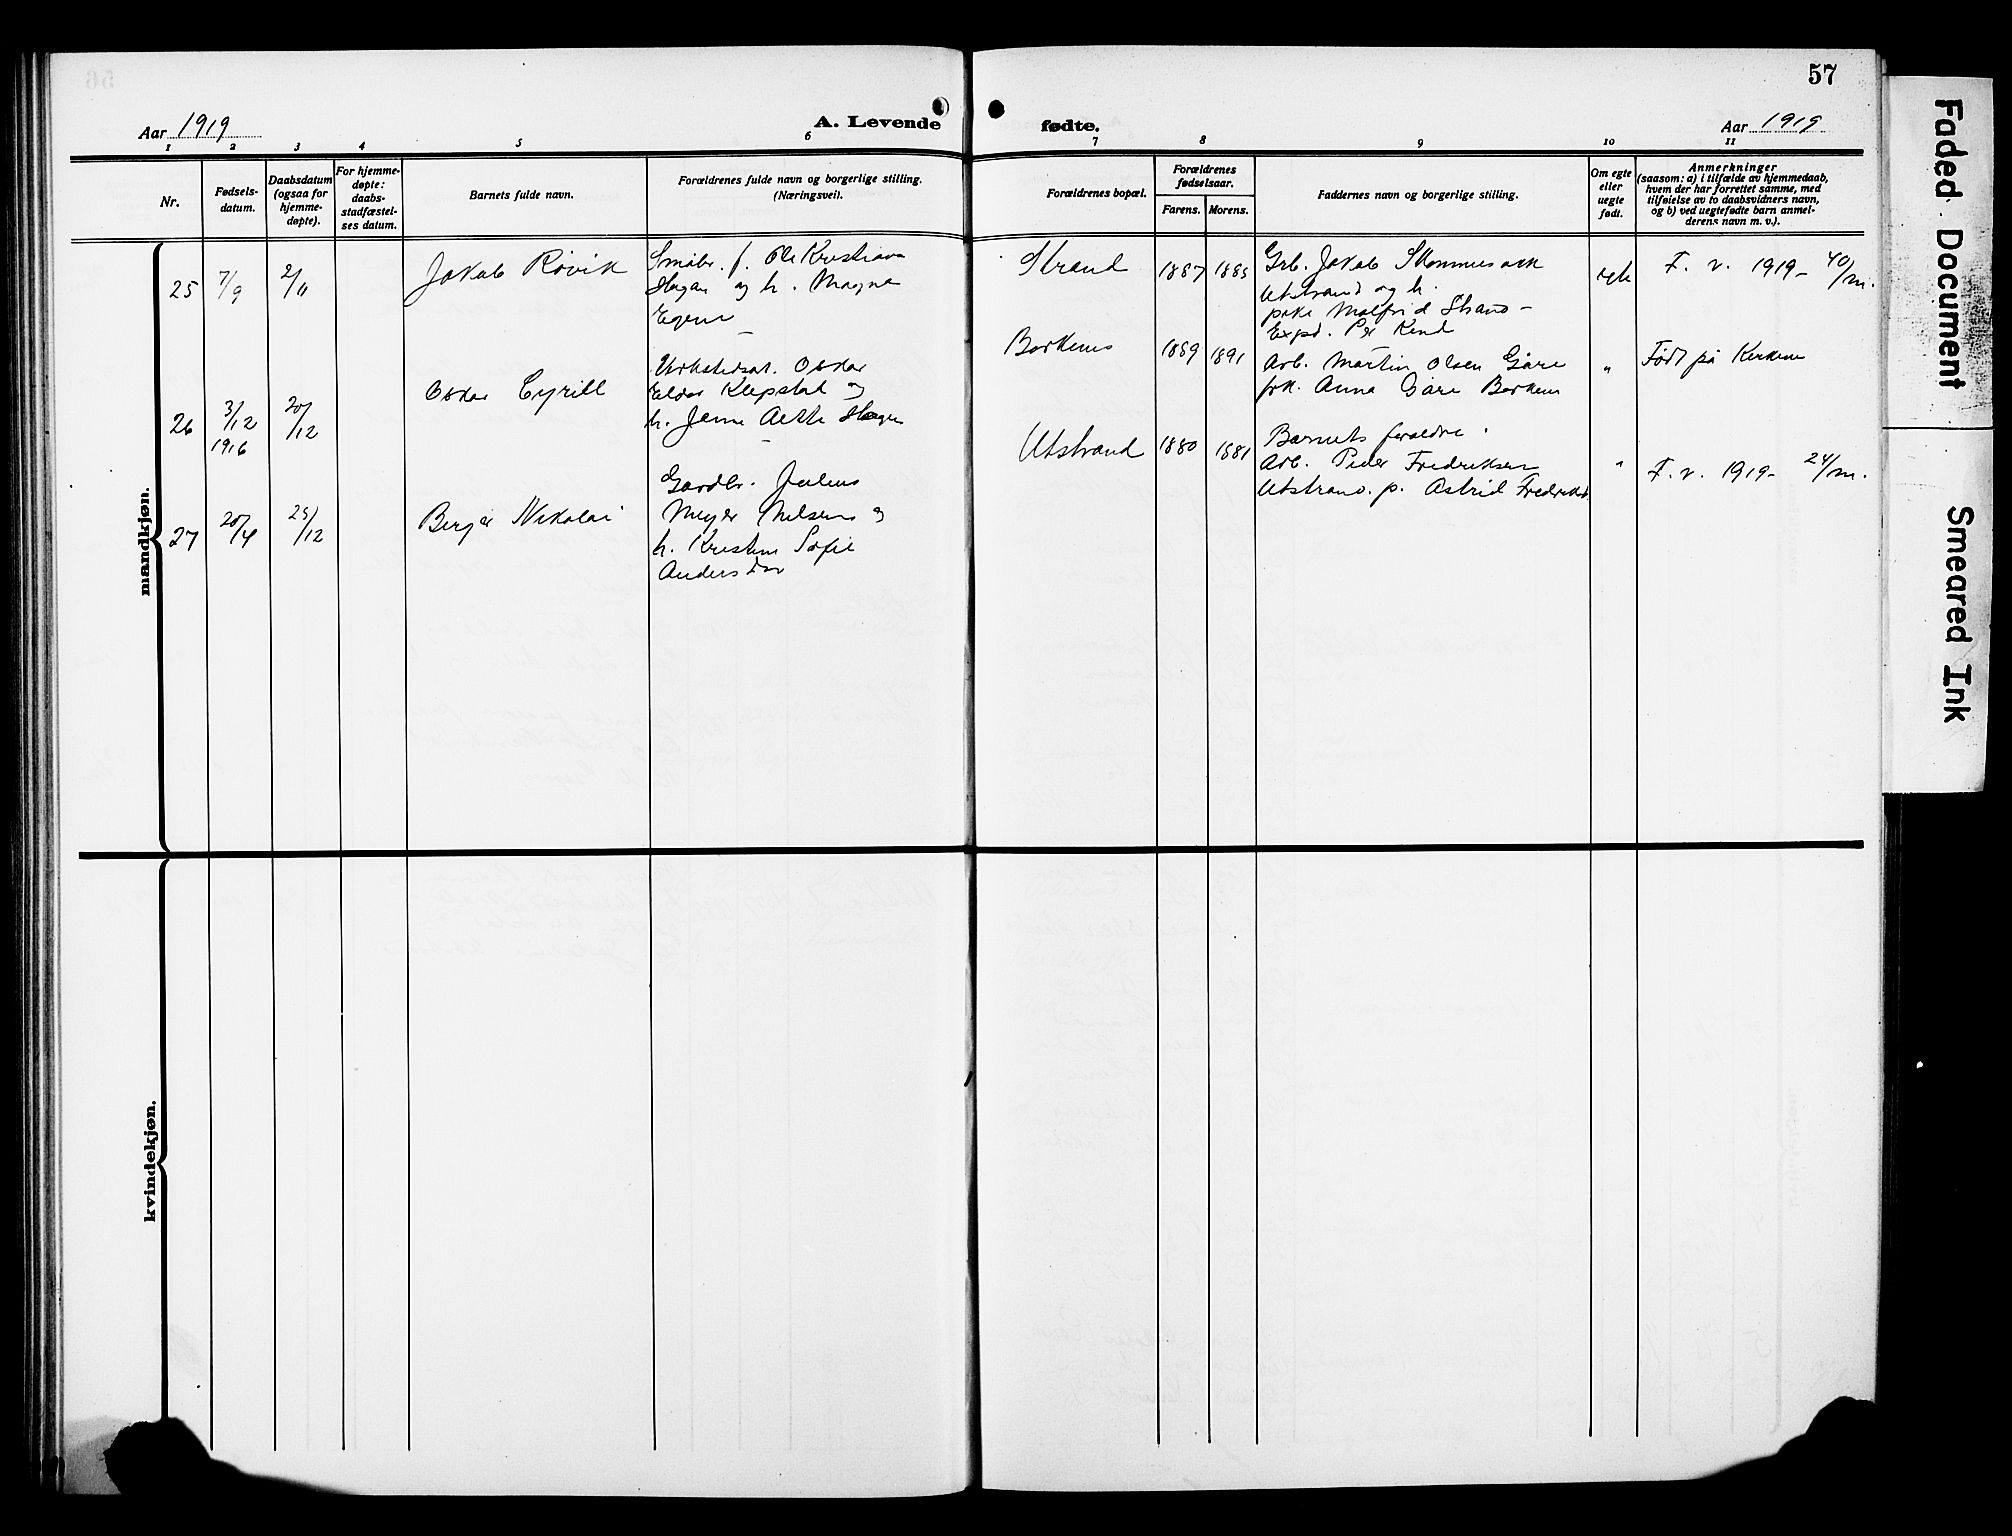 57
Aar 1919
A. Levende
fødte.
Aar 1919
1 2 3 4 5 6 7 8 9 10 11
Nr.
Fødsels-
datum.
Daabsdatum
(ogsaa for
hjemme-
døpte).
For hjemme-
døpte:
daabs-
stadfæstel-
ses datum.
Barnets fulde navn.
Forældrenes fulde navn og borgerlige stilling.
(Næringsvei).
Forældrenes bopæl.
Forældrenes
fødselsaar.
Farens.
Morens.
Faddernes navn og borgerlige stilling.
Om egte
eller
uegte
født.
Anmerkninger
(saasom: a) i tilfælde av hjemmedaab,
hvem der har forrettet samme, med
tilføielse av to daabsvidners navn,
og b) ved uegtefødte barn anmel-
derens navn m. v.).
mandkjøn.
25
7/9
2/11
Jakob Røvik
Småbr. f. Ole Kristian
Hagan og h. Magna
Strand
1887
1885
Grb. Jakob
Utstrand og h.
pike Malfrid Strand –
Expd. Per
egte
F. v. 1919 – 40/m.
26
3/12
1916
20/12
Oskar Cyrill
Verkstedsar. Oskar
Eldar Klepstad og
h. Jenny
Borkenes
1889
1891
Arb. Martin Olsen Gåre
frk. Anna Gåre Borkenes
"
Født på Kirkenes
27
20/4
25/12
Birger Nikolai
Gaardbr. Julius
Meyer Nilsen og
h. Kristine Sofie
Andersdtr
Utstrand
1880
1881
Barnets foreldre.
Arb. Peder Fredriksen
Utstrand. p. Astrid
"
F. v. 1919 – 24/m.
kvindekjøn.
Faded Document
Smeared Ink